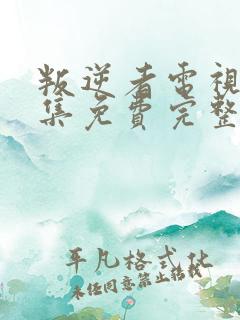 叛逆者電視
集免費完整
平凡格式化
未经同意禁止转载